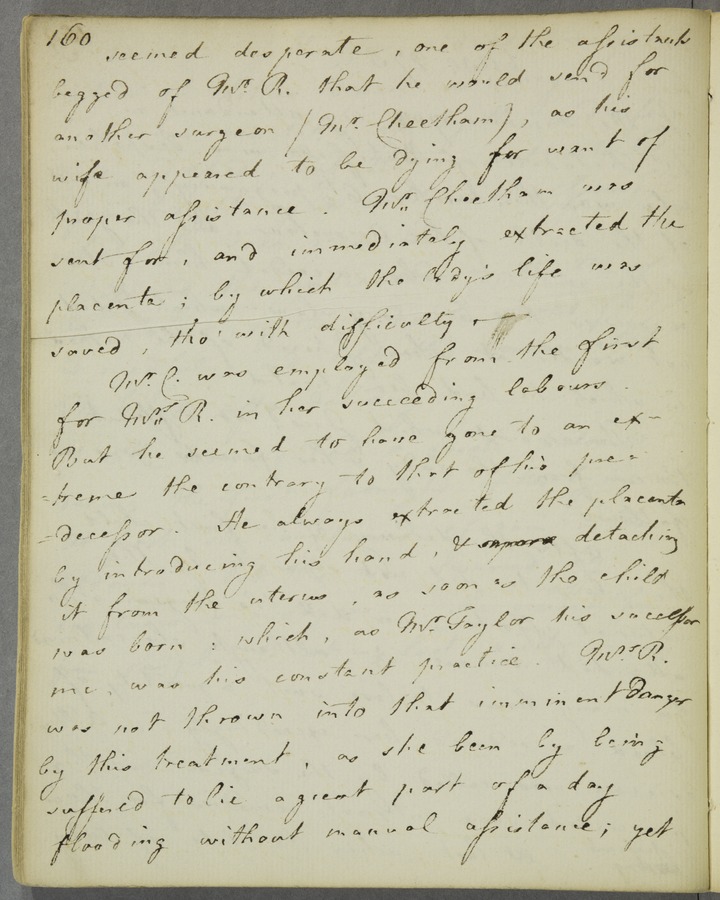 160
seemed desperate, one of the assistants
begged of Mr. R. that he would send for
another surgeon (Mr. Cheetham), as his
wife appeared to be dying for want of
proper assistance. Mr. Cheetham was
sent for, and immediately extracted the
placenta; by which the lady's life was
saved, tho' with difficulty.
Mr. C. was employed from the first
for Mrs. R. in her succeeding labours.
But he seemed to have gone to an ex-
=treme the contrary to that of his pre=
=decessor. He always extracted the placenta
by introducing his hand, & detaching
it from the uterus, as soon as the child
was born: which, as Mr. Taylor his successor
me, was his constant practice. Mrs. R.
was not thrown into that imminent Danger
by this treatment, as she been by being
suffered to lie a great part of a day
flooding without manual assistance; yet